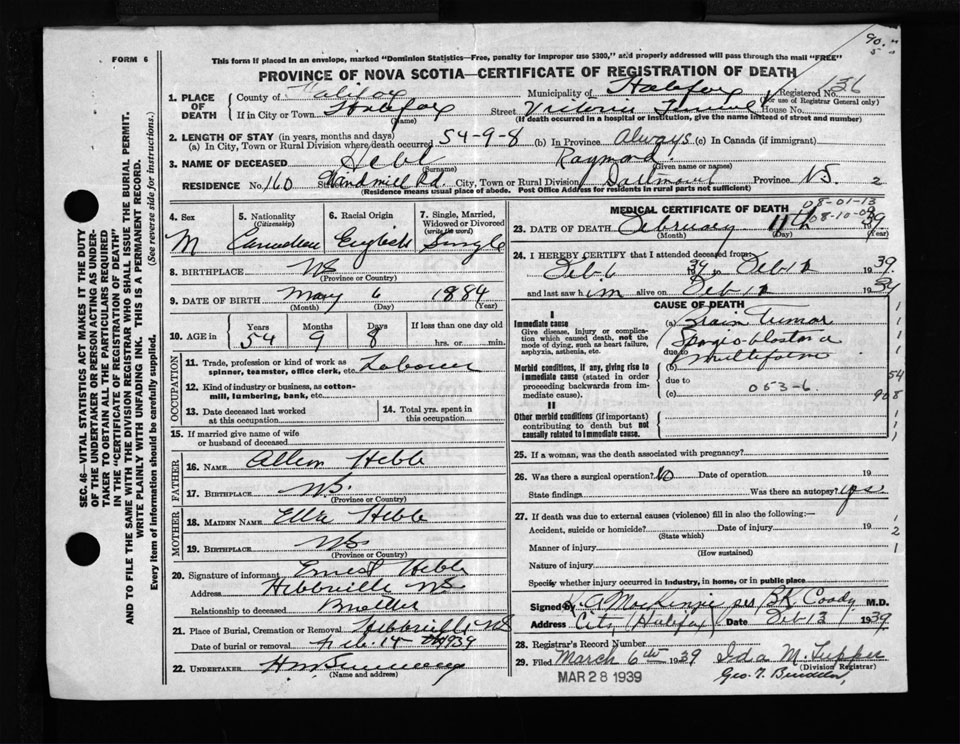 90.
5
This form if placed in an envelope, marked "Dominion Statistics—Free, penalty for improper use $300," and properly addressed will pass through the mail "FREE"
FORM 6
PROVINCE OF NOVA SCOTIA—CERTIFICATE OF REGISTRATION OF DEATH
1. PLACE OF DEATH
County of Halifax Municipality of Halifax Registered No. 136
(For use of Registrar General only)
If in City or Town Halifax Street Victoria General House No.
(Name) (If death occurred in a hospital or institution, give the name instead of street and number)
2. LENGTH OF STAY (in years, months and days)
(a) In City, Town or Rural Division where death occurred 54-9-8 (b) In Province always (c) In Canada (if immigrant)
3. NAME OF DECEASED Hebb Raymond
(Surname) (Given name or names)
RESIDENCE No. 160 Street Windmill Rd. City, Town or Rural Division Dartmouth Province NS. 2
(Residence means usual place of abode. Post Office Address for residents in rural parts not sufficient)
4. Sex M
5. Nationality (Citizenship) Canadian
6. Racial Origin English
7. Single, Married, Widowed or Divorced (write the word) Single
8. BIRTHPLACE NS
(Province or Country)
9. DATE OF BIRTH May 6 1884
(Month) (Day) (Year)
10. AGE in Years 54 Months 9 Days 8 If less than one day old
hrs. or min.
OCCUPATION
11. Trade, profession or kind of work as spinner, teamster, office clerk, etc. Labourer
12. Kind of industry or business, as cotton-mill, lumbering, bank, etc.
13. Date deceased last worked at this occupation
14. Total yrs. spent in this occupation
15. If married give name of wife or husband of deceased
FATHER
16. NAME Hebb
17. BIRTHPLACE NS.
MOTHER
18. MAIDEN NAME Hebb
19. BIRTHPLACE NS
(Province or Country)
20. Signature of informant Ernest Hebb
Address Hebbville NS
Relationship to deceased Brother
21. Place of Burial, Cremation or Removal Hebbville NS
Date of burial or removal Feb. 14 1939
22. UNDERTAKER
(Name and address)
MEDICAL CERTIFICATE OF DEATH
08-01-13
08-10-09
23. DATE OF DEATH February 11th 1939
(Month) (Day) (Year)
24. I HEREBY CERTIFY that I attended deceased from:
Feb 6 1939 to Feb 1939.
and last saw him alive on Feb 1939
CAUSE OF DEATH
I
Immediate cause
Give disease, injury or complication which caused death, not the mode of dying, such as heart failure, asphyxia, asthenia, etc.
(a) Brain Tumor
Spongio-blastoma
due to
multiforme
Morbid conditions, if any, giving rise to immediate cause (stated in order proceeding backwards from immediate cause).
(b)
due to
053-6.
(c)
54
908
II
Other morbid conditions (if important) contributing to death but not causally related to immediate cause.
25. If a woman, was the death associated with pregnancy?
26. Was there a surgical operation? No Date of operation 19
State findings Was there an autopsy? yes
27. If death was due to external causes (violence) fill in also the following:—
Accident, suicide or homicide? Date of injury 19
(State which)
Manner of injury
(How sustained)
Nature of injury
Specify whether injury occurred in industry, in home, or in public place
Signed by K. A. MacKenzie per BK Coady M.D.
Address City (Halifax) Date Feb 13 1939
28. Registrar's Record Number
29. Filed March 6th 1939 Ida M. Tupper
(Division Registrar)
MAR 28 1939
SEC. 46—VITAL STATISTICS ACT MAKES IT THE DUTY
OF THE UNDERTAKER OR PERSON ACTING AS UNDER-
TAKER TO OBTAIN ALL THE PARTICULARS REQUIRED
IN THE "CERTIFICATE OF REGISTRATION OF DEATH"
AND TO FILE THE SAME WITH THE DIVISION REGISTRAR WHO SHALL ISSUE THE BURIAL PERMIT.
WRITE PLAINLY WITH UNFADING INK. THIS IS A PERMANENT RECORD.
Every item of information should be carefully supplied. (See reverse side for instructions.)